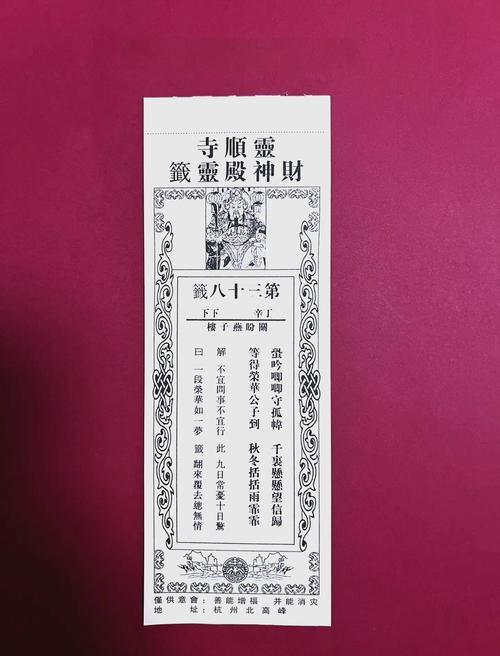 靈順寺
財神殿靈籤
第三十八籤
丁辛 下下
關盼燕子樓
蛩吟唧唧守孤幃 千裏懸懸望信歸
等得榮華公子到 秋冬括括雨霏霏
解 不宜問事不宜行 此 九日常憂十日驚
曰 一段榮華如一夢 籤 翻來覆去總無情
僅供意會：善能增福 并能消灾
地 址：杭州北高峰